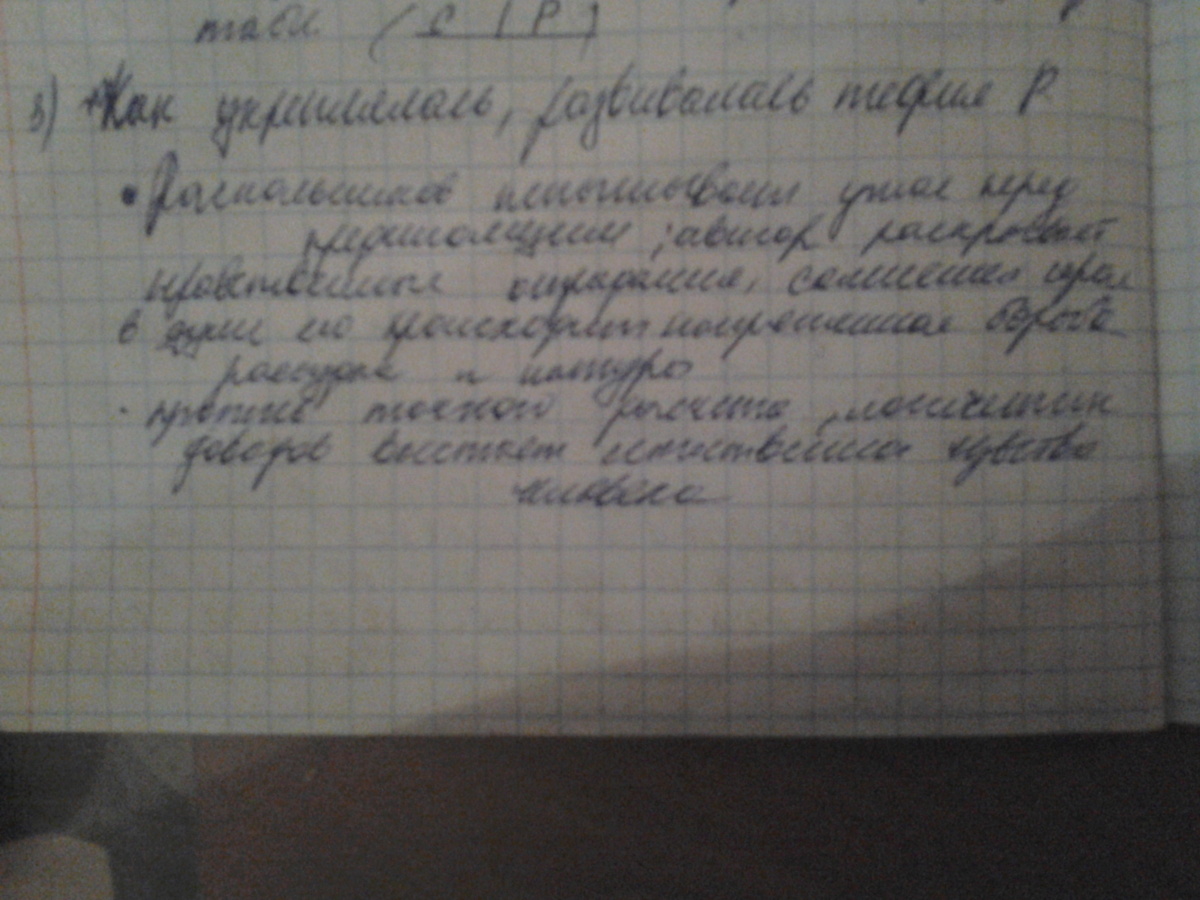 ( С | Р )
3) Как укреплялась, развивалась теория Р.
• Раскольников испытывает ужас перед
предстоящим ; автор раскрывает
нравственные страдания, сомнения героя
в душе его происходит напряженная борьба
рассудка и натуры
· против точного расчета , логических
доводов восстает естественное чувство
человека